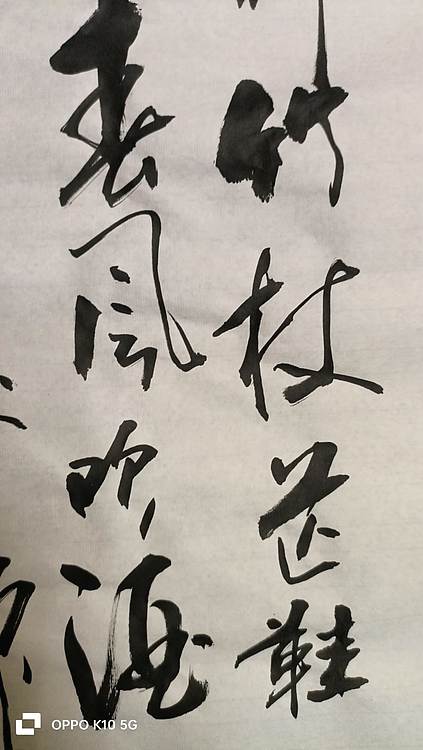 竹杖芒鞋
春風吹酒
OPPO K10 5G